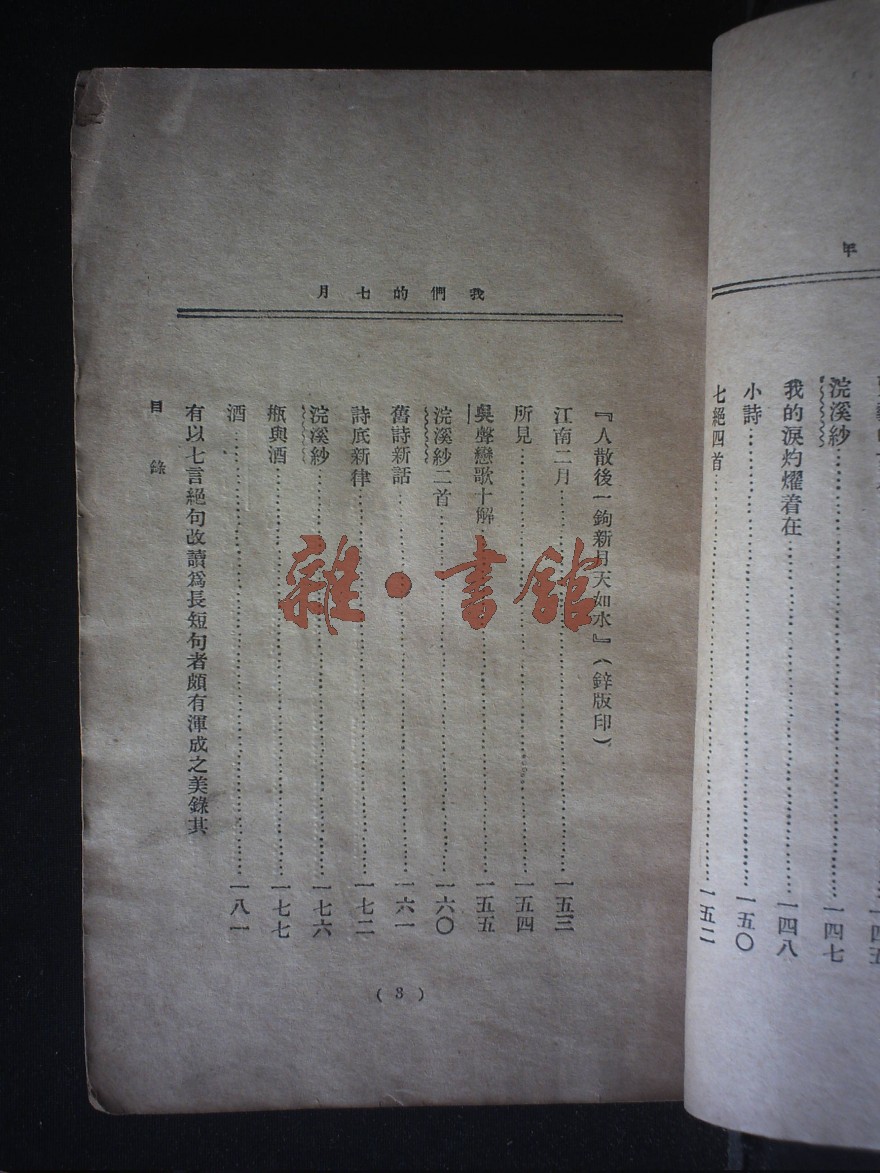 年
浣溪紗……一四七
我的淚灼燿着在……一四八
小詩……一五〇
七絕四首……一五二
我們的七月
『人散後一鉤新月天如水』(鋅版印)
江南二月……一五三
所見……一五四
吳聲戀歌十解……一五五
浣溪紗二首……一六〇
舊詩新話……一六一
詩底新律……一七二
浣溪紗……一七六
瓶與酒……一七七
酒……一八一
有以七言絕句改讀爲長短句者頗有渾成之美錄其
目錄
(3)
雜·書館